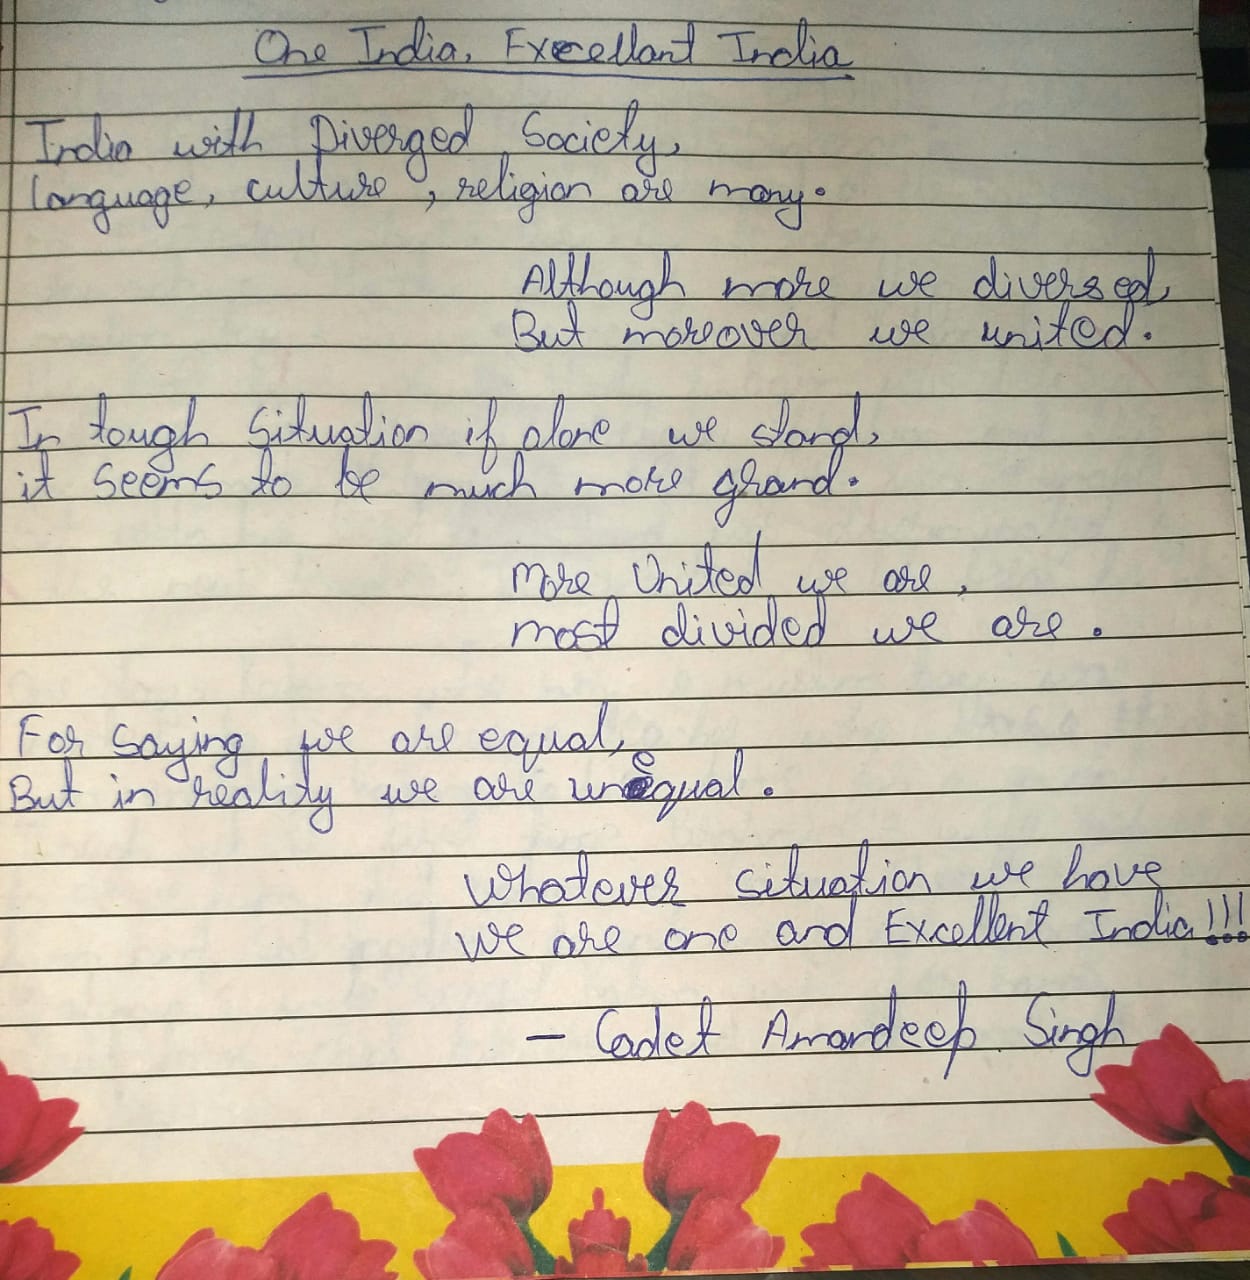 One India, Excellant India
India with Diverged Society,
language, culture, religion are many.
Although more we diversed,
But moreover we united.
In tough Situation if alone we stand,
it seems to be much more grand.
More United we are,
most divided we are.
For Saying we are equal,
But in reality we are unequal.
Whatever situation we have
we are one and Excellent India!!!
- Cadet Amandeep Singh